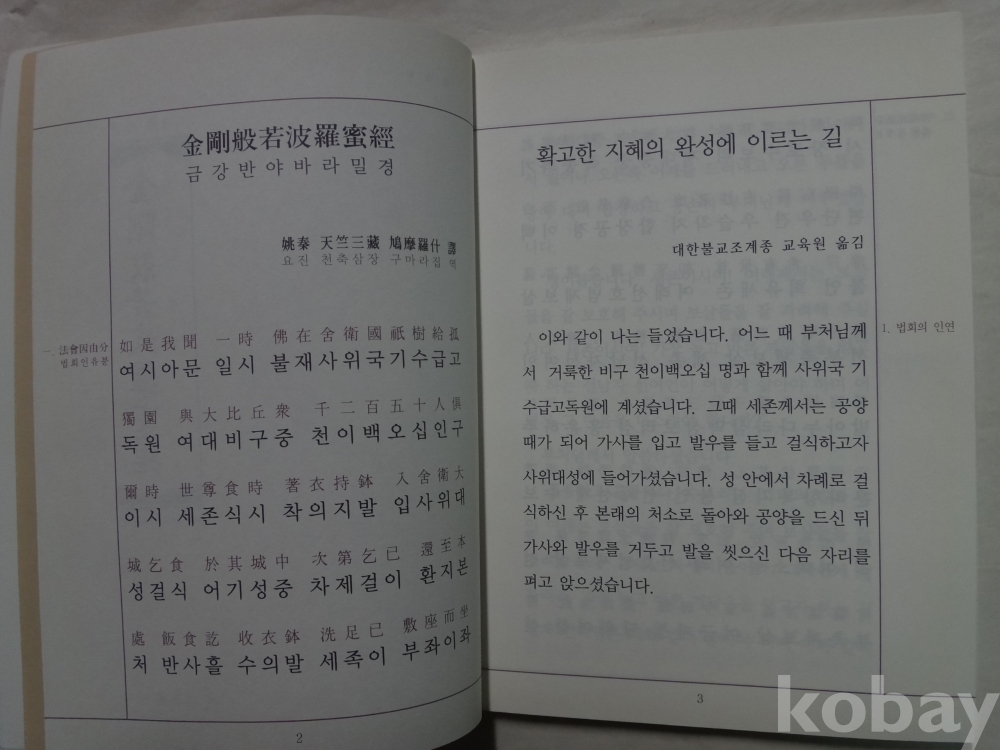 金剛般若波羅蜜經
금강반야바라밀경
姚秦 天竺三藏 鳩摩羅什 譯
요진 천축삼장 구마라집 역
一. 法會因由分
법회인유분
如是我聞 一時 佛在舍衛國祇樹給孤
여시아문 일시 불재사위국기수급고
獨園 與大比丘衆 千二百五十人俱
독원 여대비구중 천이백오십인구
爾時 世尊食時 著衣持鉢 入舍衛大
이시 세존식시 착의지발 입사위대
城乞食 於其城中 次第乞已 還至本
성걸식 어기성중 차제걸이 환지본
處 飯食訖 收衣鉢 洗足已 敷座而坐
처 반사흘 수의발 세족이 부좌이좌
2
확고한 지혜의 완성에 이르는 길
대한불교조계종 교육원 옮김
1. 법회의 인연
이와 같이 나는 들었습니다. 어느 때 부처님께
서 거룩한 비구 천이백오십 명과 함께 사위국 기
수급고독원에 계셨습니다. 그때 세존께서는 공양
때가 되어 가사를 입고 발우를 들고 걸식하고자
사위대성에 들어가셨습니다. 성 안에서 차례로 걸
식하신 후 본래의 처소로 돌아와 공양을 드신 뒤
가사와 발우를 거두고 발을 씻으신 다음 자리를
펴고 앉으셨습니다.
3
kobay